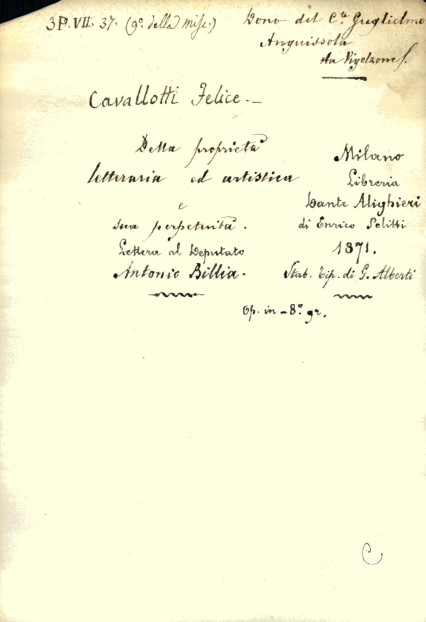 3P.VII.37. (9º. della misc.)
Dono del C.te Guglielmo
Anguissola
da Vigolzone
Cavallotti Felice. _
Della proprietà
letteraria ed artistica
e
sua perpetuità.
Lettera al Deputato
Antonio Billia.
Milano
Libreria
Dante Alighieri
di Enrico Politti
1871.
Stab. tip. di G. Alberti
Op. in - 8º. gr.
C